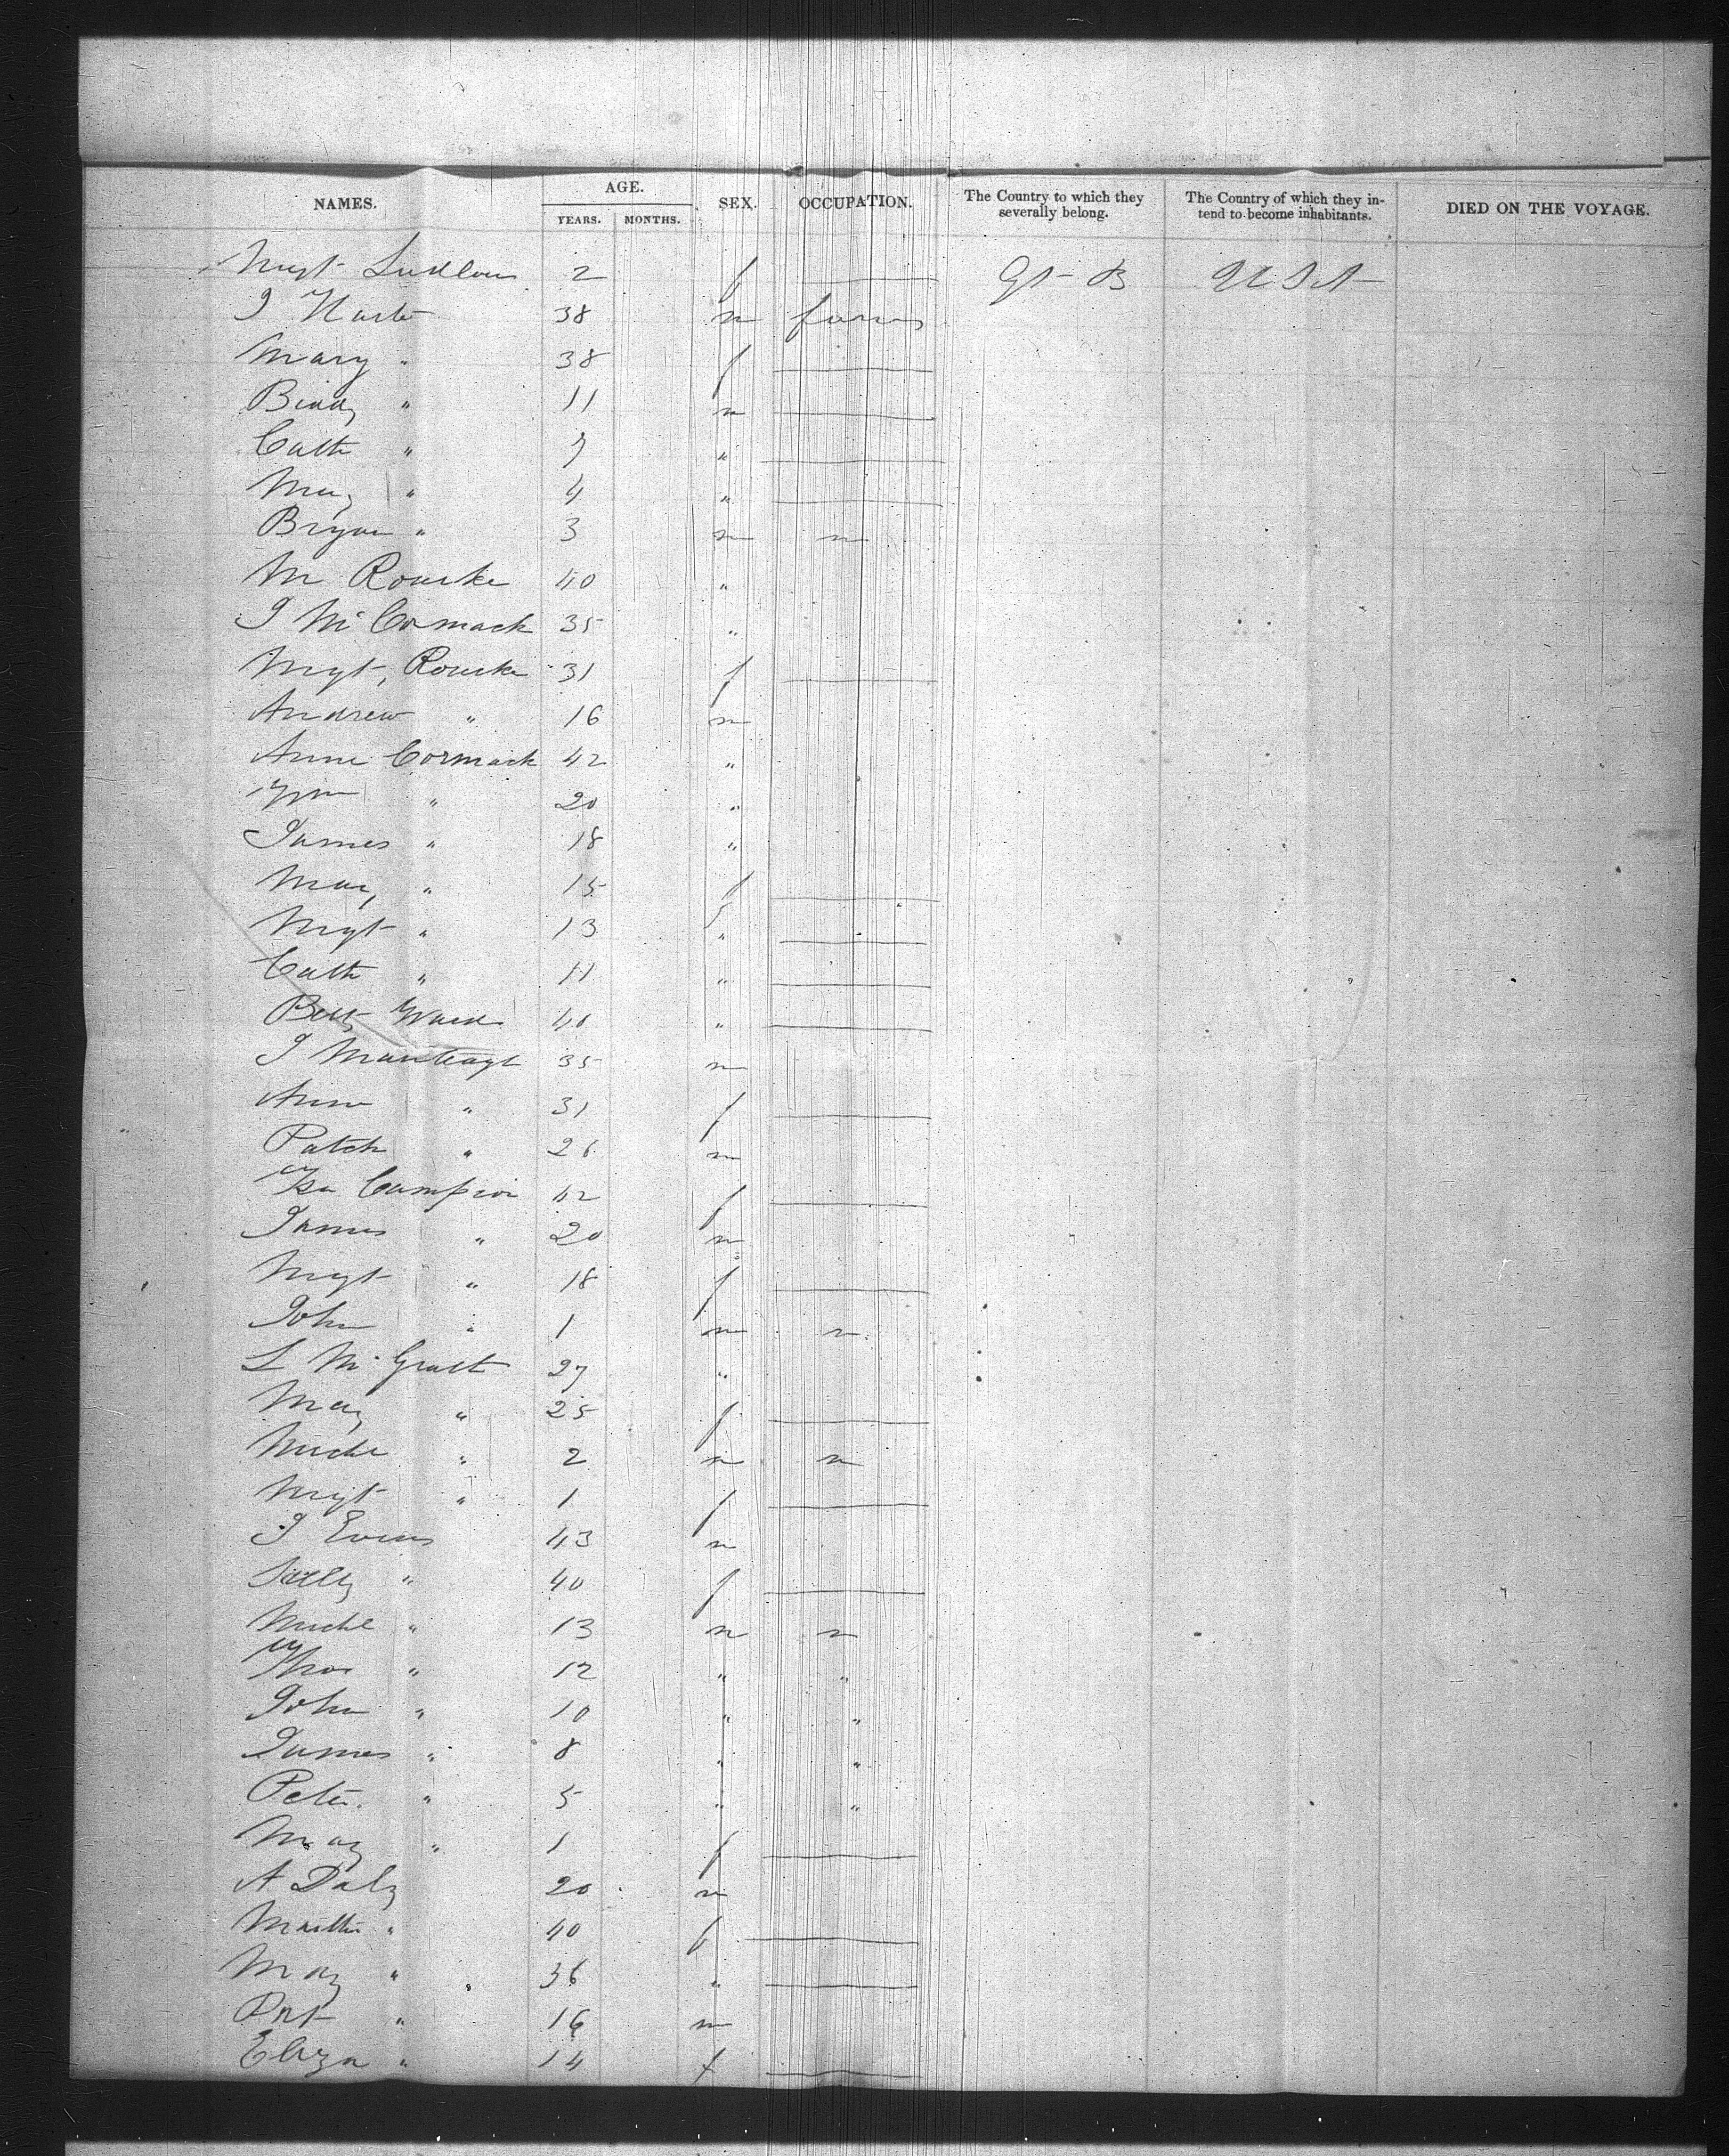 NAMES. AGE. SEX. OCCUPATION. The Country to which they severally belong. The Country of which they intend to become inhabitants. DIED ON THE VOYAGE.
YEARS. MONTHS.
Mgt Ludlow 2 f Gt B U S A
J 38 m
Mary " 38 f
Biddy " 11 m
Cath " 7 "
Mary " 4 "
Bryan " 3 m
M Rourke 40 "
J McCormack 35 "
Mgt, Rourke 31 f
Andrew " 16 m
Anne Cormack 42 "
Wm " 20 "
James " 18 "
Mary " 15 f
Mgt " 13 "
Cath " 11 "
Betty Ward 40 "
J 35 m
Anne " 31 f
Patck " 26 m
Campion 42 f
James " 20 m
Mgt " 18 f
John " 1 m
L McGrath 27 "
Mary " 25 f
Michl " 2 m
Mgt " 1 f
J Evans 43 m
Sally " 40 f
Michl " 13 m
Thos " 12 " "
John " 10 " "
James " 8 " "
Peter " 5 " "
Mary " 1 f
A Daly 20 m
" 40 f
Mary " 36 "
Pat " 16 m
Eliza " 14 f